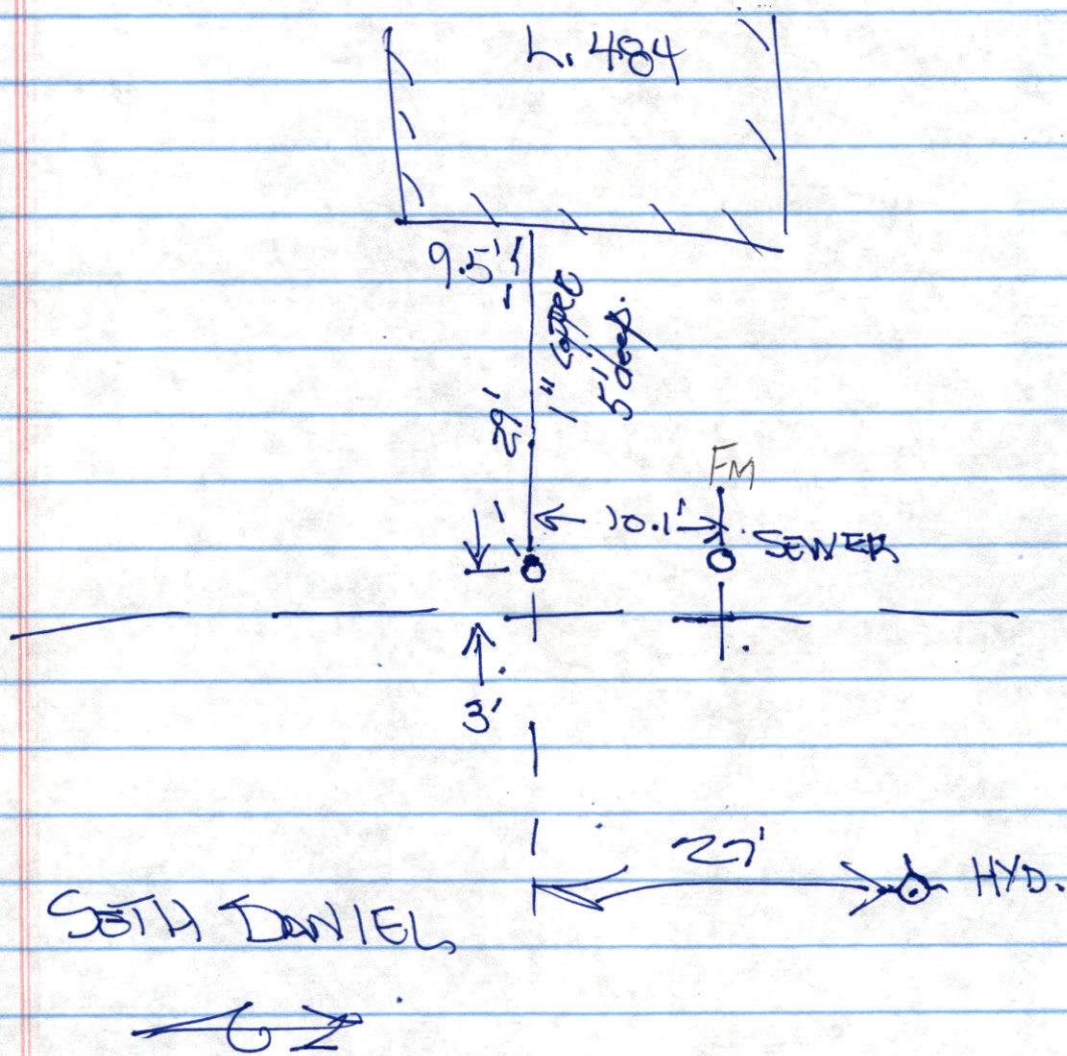 L. 484
9.5'
1" COPPER
5' deep.
29'
FM
10.1'
SEWER
3'
27'
HYD.
SETH DANIEL